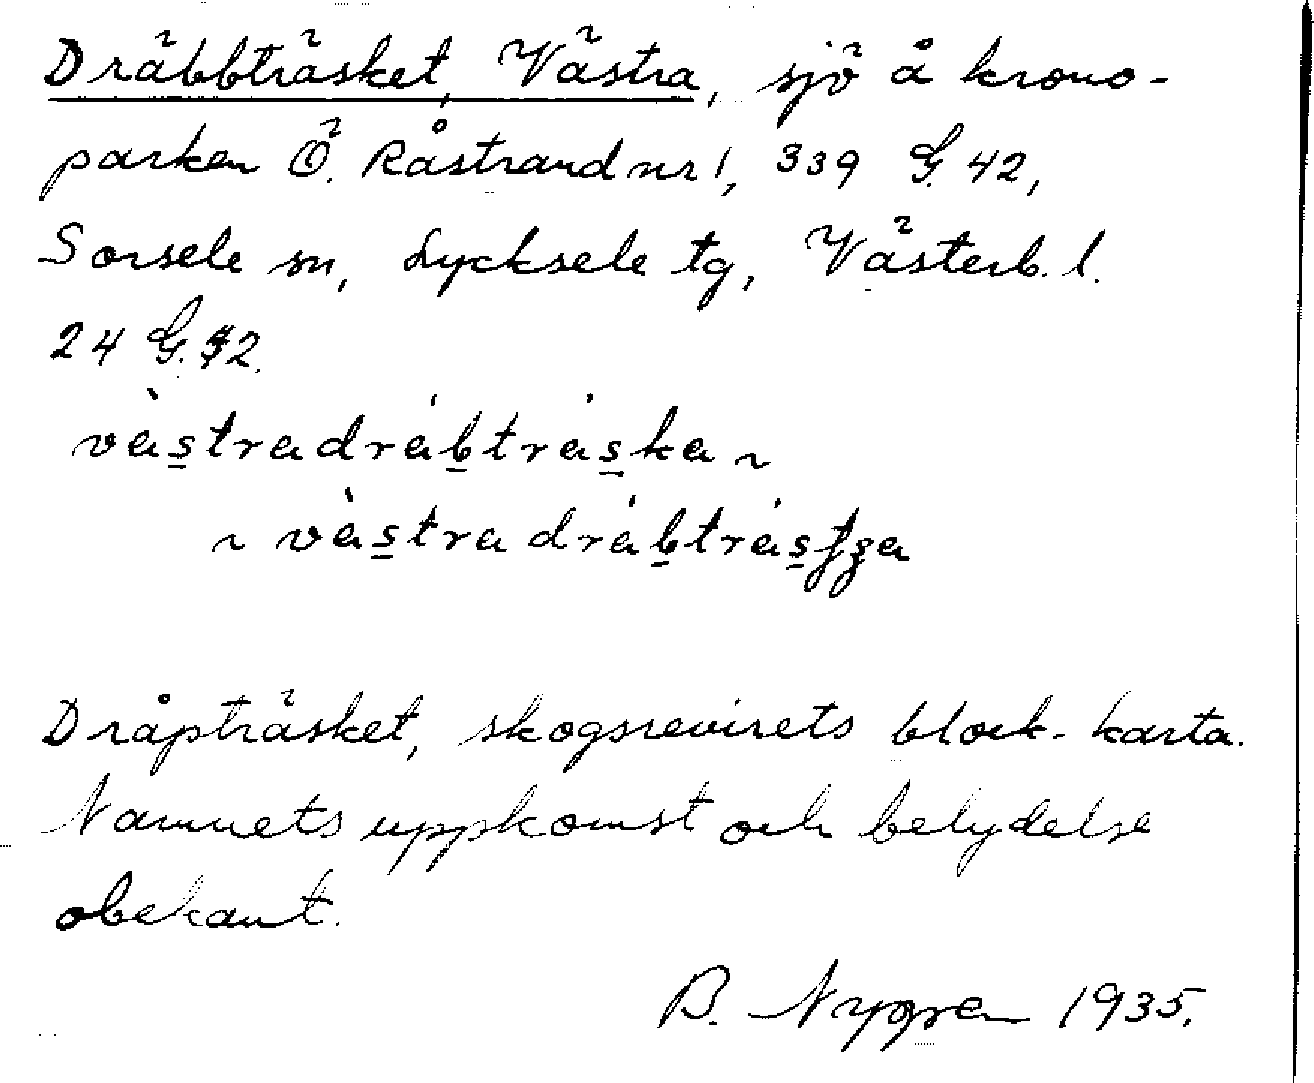 Dräbbträsket, Västra, sjö å krono-
parken Ö. Råstrand nr 1, 339 G. 42,
Sorsele sn, Lycksele tg, Västerb. l.
24 G. 32.
vàstradrábtráska ~
~ vàstradrábtrásʈʂa
Dråpträsket, skogsrevirets block-karta.
Namnets uppkomst och betydelse
obekant.
B. Nygren 1935.